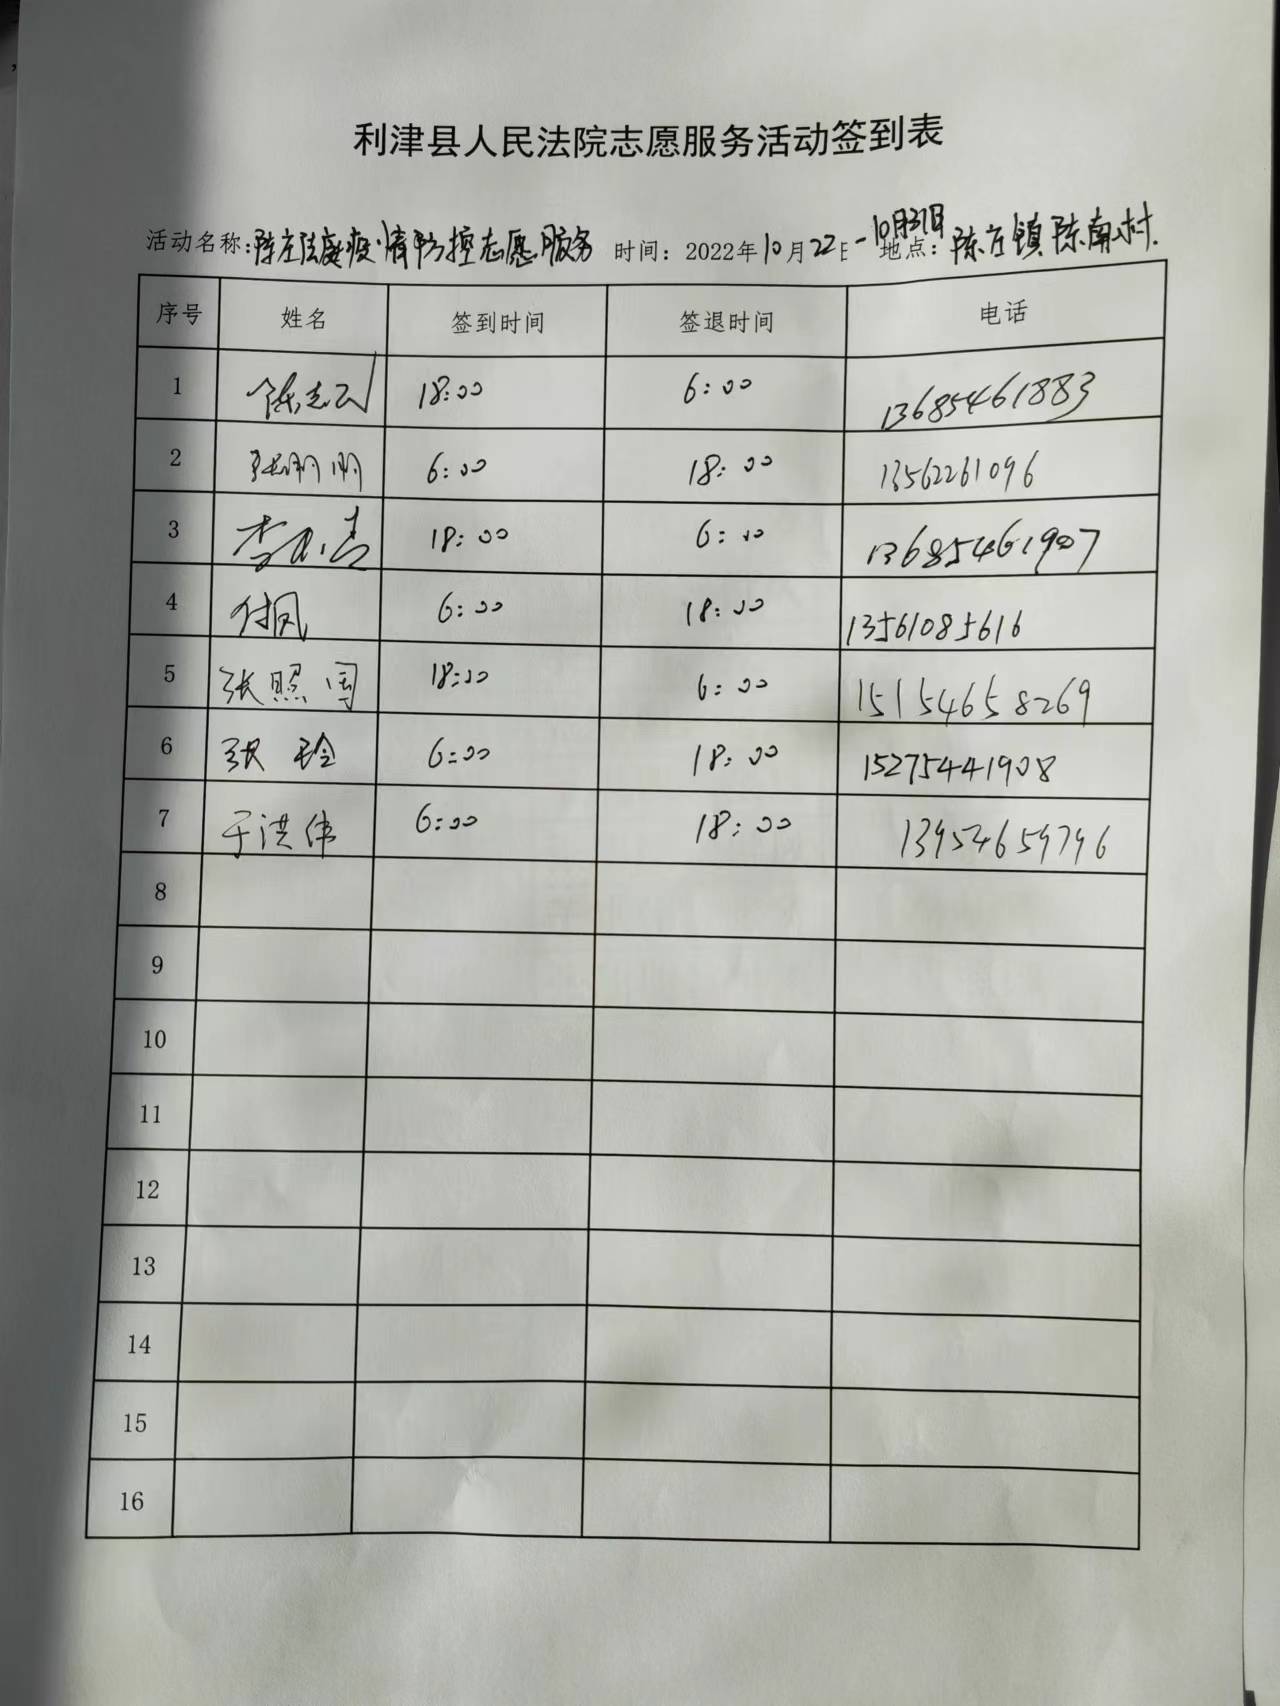 利津县人民法院志愿服务活动签到表
活动名称：陈庄法庭疫情防控志愿服务 时间：2022年10月22日-10月31日 地点：陈庄镇陈南村.
序号 姓名 签到时间 签退时间 电话
1 陈志 18:00 6:00 13685461883
2 张明明 6:00 18:00 13562261096
3 李 18:00 6:00 13685461907
4 付凤 6:00 18:00 13561085616
5 张照国 18:00 6:00 15154658269
6 张玲 6:00 18:00 15275441908
7 于洪伟 6:00 18:00 13954659796
8
9
10
11
12
13
14
15
16